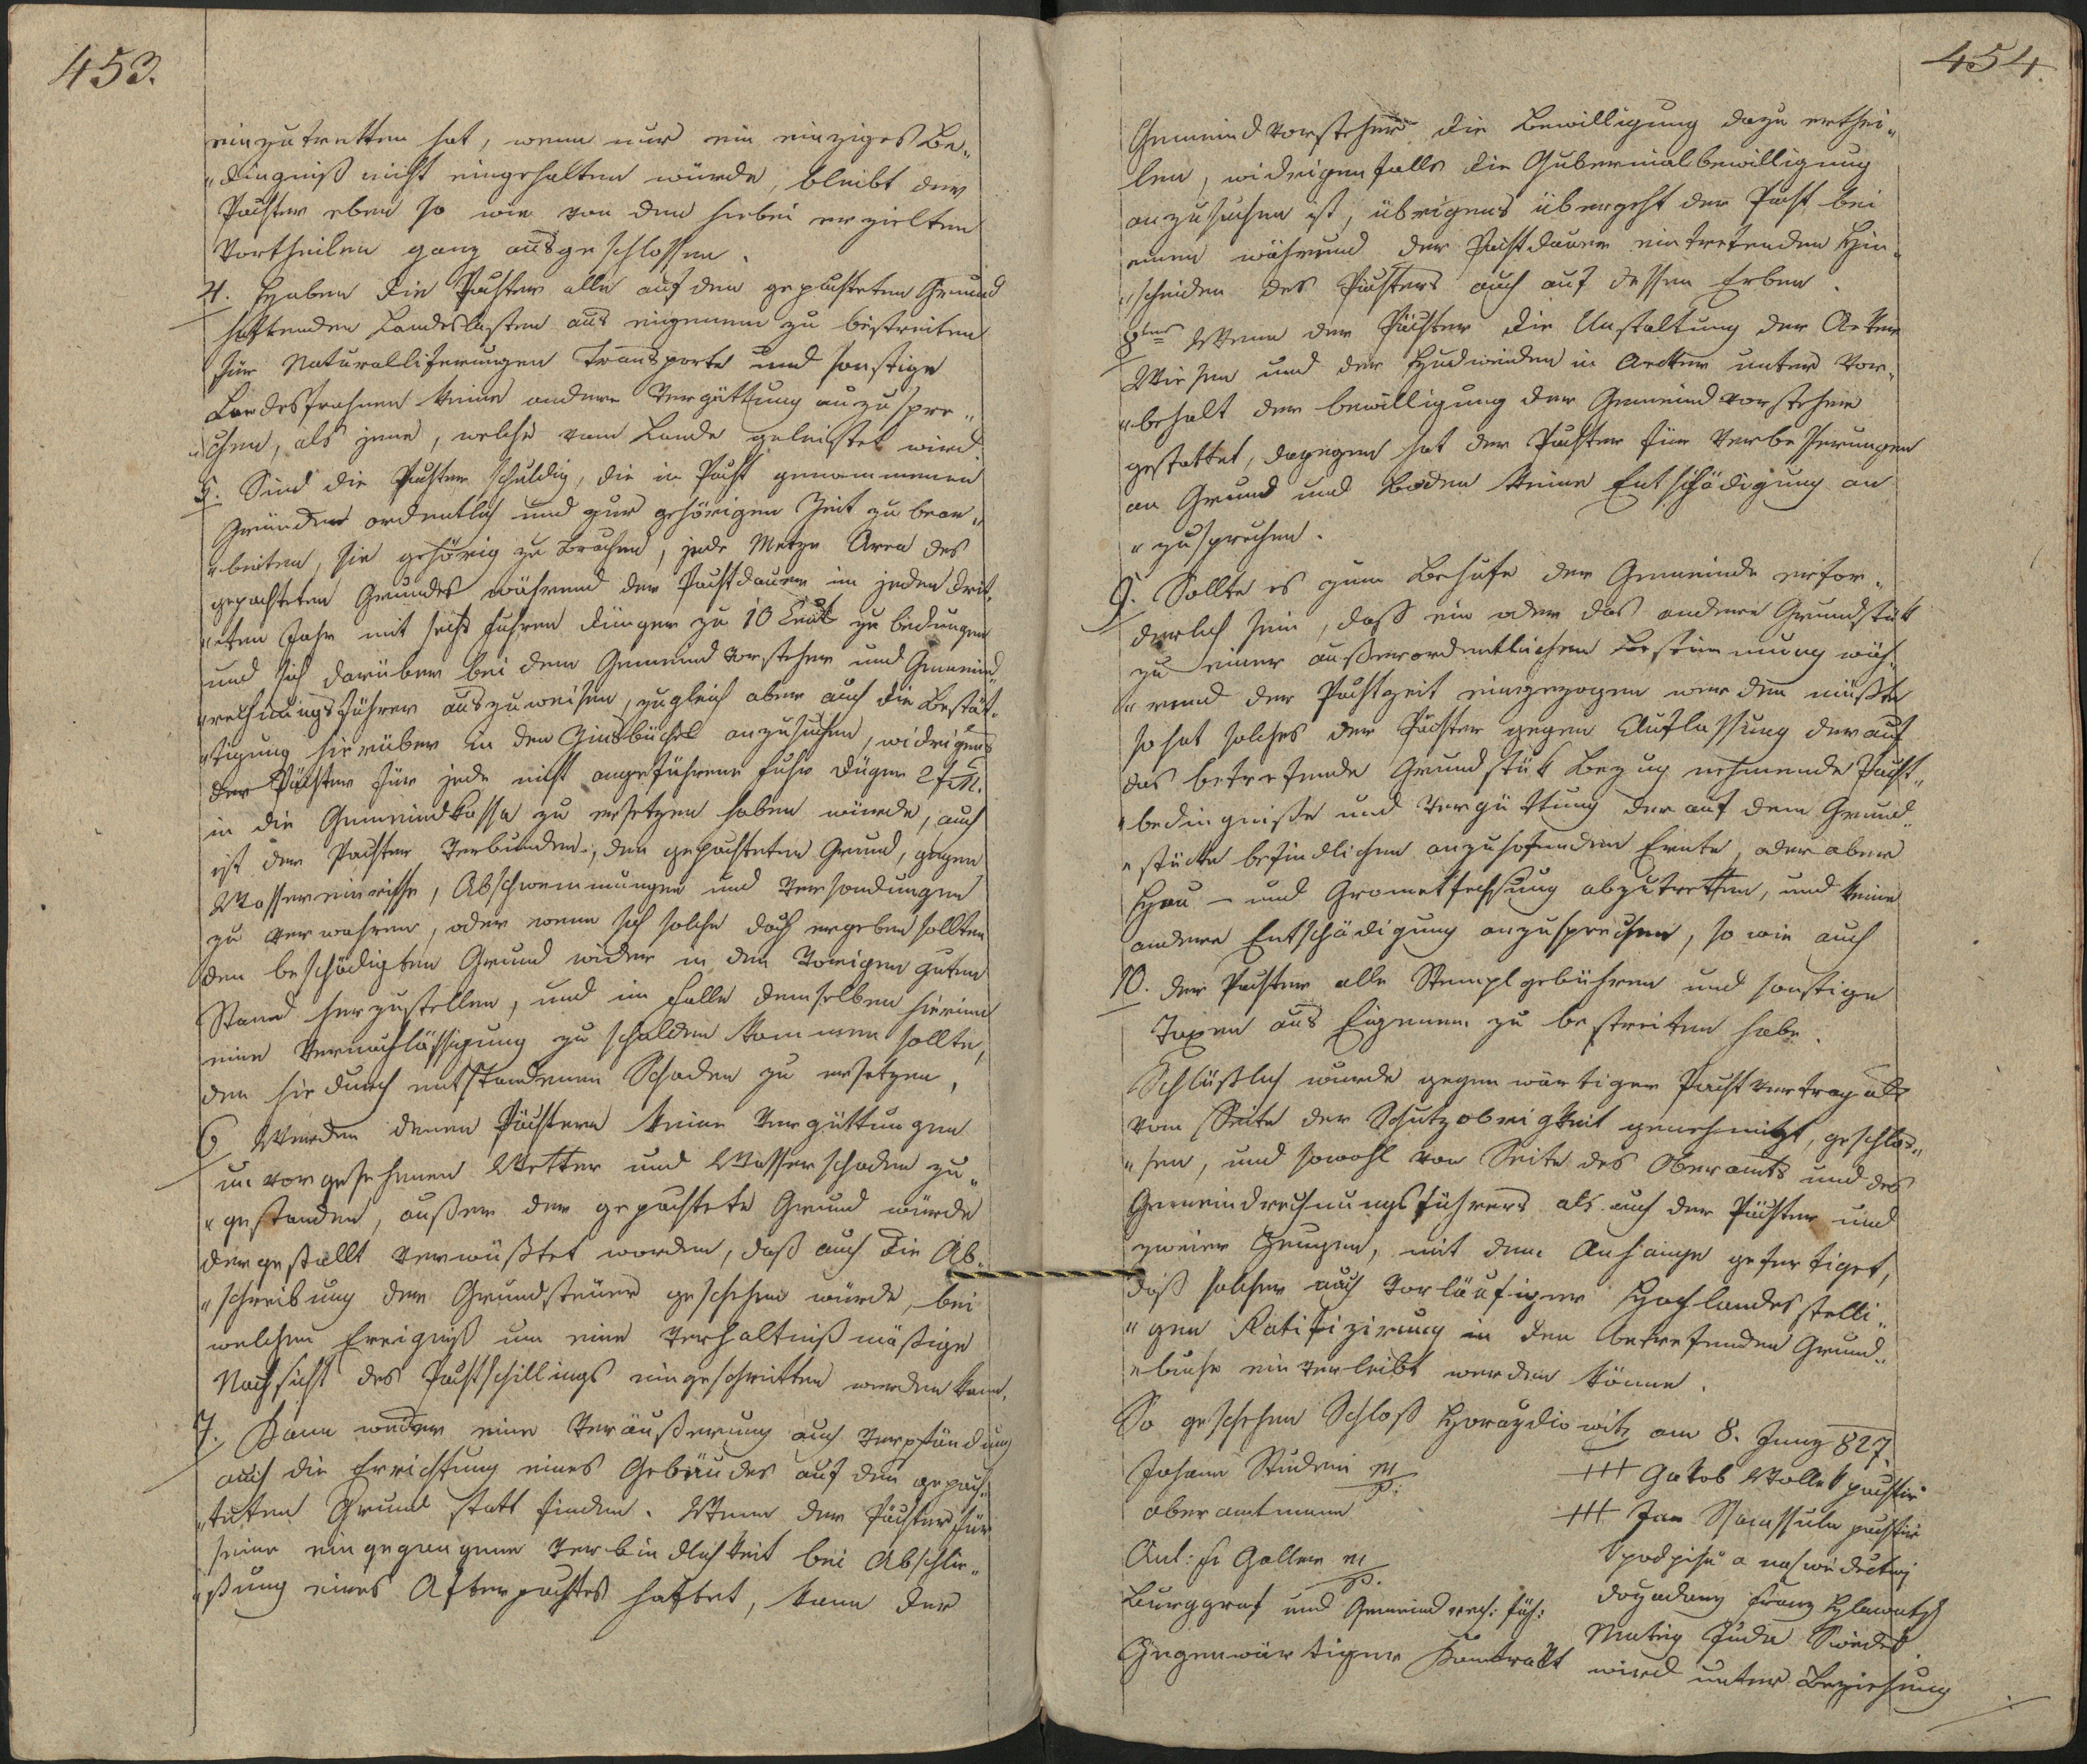 453.
einzutretten hat, wenn nur ein einziges Be„
„dingniß nicht eingehalten würde, bleibt der
Pächter eben so wie von den hiebei erzielten
Vortheilen ganz ausgeschlossen.
4. Haben die Pächter alle auf den gepachteten Grund
haftenden Landeslasten aus eigenem zu bestreiten
für Naturallieferungen Transporte und sonstige
Landesfrohnen keine andere Vergüttung anzuspre„
„chen, als jene, welche vom Lande geleistet wird.
5. Sind die Pächter schuldig, die in Pacht genommenen
Gründe ordentlich und zur gehörigen Zeit zu bear„
„beiten, sie gehörig zu brachen, jede Metze Area des
gepachteten Grundes während der Pachtdauer im jeden drit„
„ten Jahr mit sechs Fuhren Dünger zu 10 Cent zu bedungen
und sich darüber bei dem Gemeind Vorsteher und Gemeind„
„rechnungsführer auszuweisen, zugleich aber auch die Bestät„
„tigung hierüber in den Zinsbüchel anzusuchen, widrigens
der Pächter für jede nicht angeführene Fuhr Dünger 2 f M.
in die Gemeindkassa zu ersetzen haben würde, auch
ist der Pachter Verbunden, den gepachteten Grund, gegen
Wassereinrisse, Abschwemmungen und Versandungen
zu verwahren, oder wenn sich solche doch ergeben sollten
den beschädigten Grund wider in den Vorigen guten
Stand herzustellen, und im Falle demselben hierinn
eine Vernachlässigung zu schulden kommen sollte,
den hiedurch entstandenen Schaden zu ersetzen,
6 Werden denen Pächtern keine Vergüttungen
unvorgesehenen Wetter und Wasserschaden zu„
„gestanden, außer der gepachtete Grund würde
dergestallt verwüßtet worden, daß auch die Ab„
„schreibung der Grundsteuer geschehen würde, bei
welchem Ereigniß um eine Verhältnißmäßige
Nachsicht des Pachtschillings eingeschritten werden kann.
7. Kann weder eine Veräußerung auch Verpfändung
auch die Errichtung eines Gebäudes auf dem gepach„
„teten Grund statt finden. Wenn der Pächter für
seine eingegangene Verbindlichkeit bei Abschlie„
„ßung eines Afterpachtes haftet, kann der
454.
Gemeindvorsteher die Bewilligung dazu erthei„
len, widrigenfalls die Gubernialbewilligung
anzusuchen ist, übrigens übergeht der Pacht bei
einen während der Pachtdauer eintretenden Hin„
„scheiden des Pächters auch auf dessen Erben.
8tens Wenn der Pächter die Umstaltung der Aeker
Wiesen und der Hudweiden in Aecker unter Vor„
„behalt der bewilligung der Gemeindvorsteher
gestattet, dagegen hat der Pachter für Verbesserungen
an Grund und Boden keine Entschädigung an
„zusprechen.
9. Sollte es zum Behufe der Gemeinde erfor„
derlich sein, dass ein oder das andere Grundstük
zu einer außerordentlichen Bestimmung wäh„
„rend der Pachtzeit eingezogen werden müßte
so hat solches der Pächter gegen Auflassung der auf
das betrefende Grundstük Bezug nehmende Pacht„
„bedingniße und Vergüttung der auf dem Grund„
„stücke befindlichen anzuhofenden Ernte, oder aber
Heu – und Grometfechsung abzutretten, und keine
andere Entschädigung anzusprechen, so wie auch
10. der Pachter alle Stempelgebühren und sonstige
Taxen aus Eigenem zu bestreiten habe.
Schlüßlich wurde gegenwärtiger Pachtvertrag als
vom Seite der Schutzobrigkeit genehmigt, geschlos„
„sen, und sowohl von Seite des Oberamts und des
Gemeindrechnungsführers als auch der Pächter und
zweier Zeugen, mit dem Anhange gefertiget,
daß solcher nach Vorläufiger Hochlandesstelli„
„gen Ratifizirung in den betrefenden Grund„
„buche einverleibt werden könne.
So geschehen Schloß Horazdiowitz am 8. Juny 827.
Johann Studeni m/p.
Oberamtmann
+++ Jakob Wollek pachtir
+++ Jan pachtir
Ant: Galler m/p.
podpisu a naswiedectwj
Burggraf und Gemeind rech: füh:
dožadany Franz Hlawatsch
Matieg Juda Swiedek
Gegenwärtiger Kontrakt wird unter Beziehung